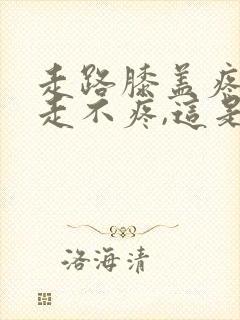 走路膝盖疼
走不疼,這是
洛海清